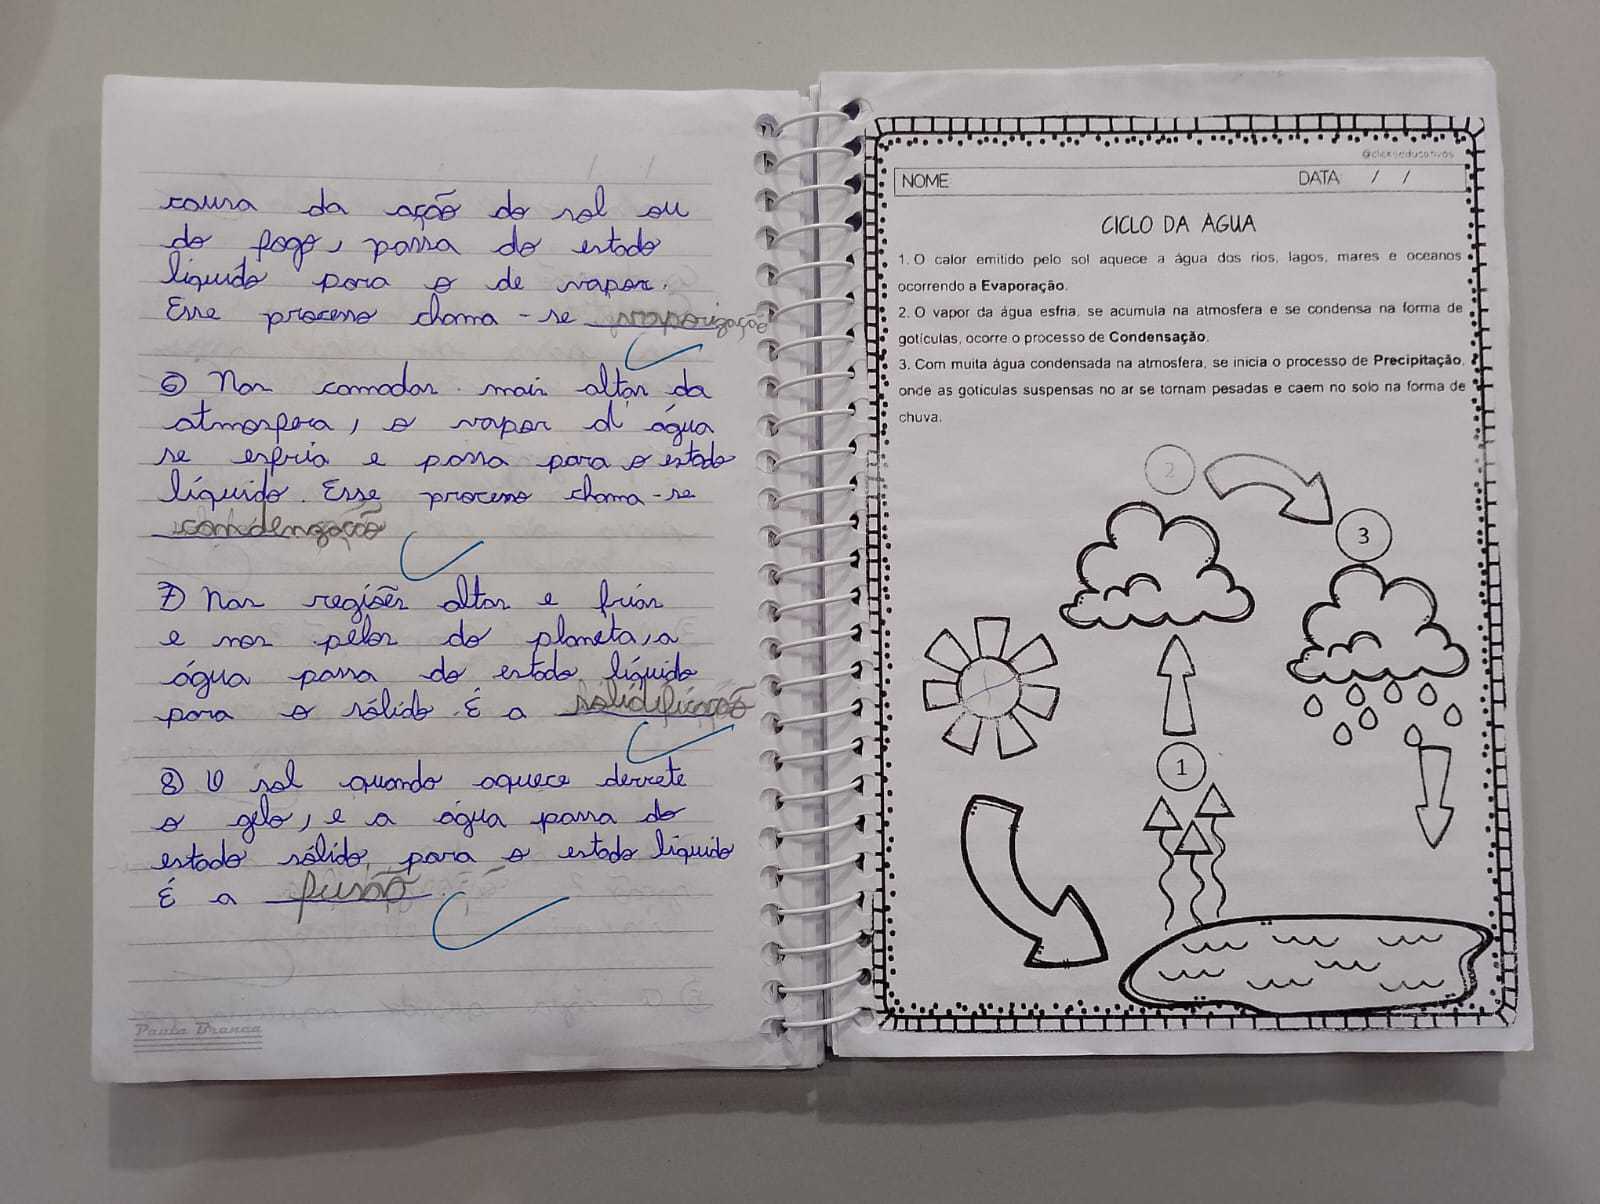 causa da ação do sol ou
do fogo, passa do estado
líquido para o de vapor.
Esse processo chama-se vaporização
6) Nas camadas mais altas da
atmosfera, o vapor d'água
se esfria e passa para o estado
líquido. Esse processo chama-se
condenzação
7) Nas regiões altas e frias
e nos pelos do planeta, a
água passa do estado líquido
para o sólido. É a solidificação
8) O sol quando aquece derrete
o gelo, e a água passa do
estado sólido para o estado líquido
É a fusão
Paula Branca
@clickseducativos
NOME DATA / /
CICLO DA ÁGUA
1. O calor emitido pelo sol aquece a água dos rios, lagos, mares e oceanos
ocorrendo a Evaporação.
2. O vapor da água esfria, se acumula na atmosfera e se condensa na forma de
gotículas, ocorre o processo de Condensação.
3. Com muita água condensada na atmosfera, se inicia o processo de Precipitação,
onde as gotículas suspensas no ar se tornam pesadas e caem no solo na forma de
chuva.
2
3
1